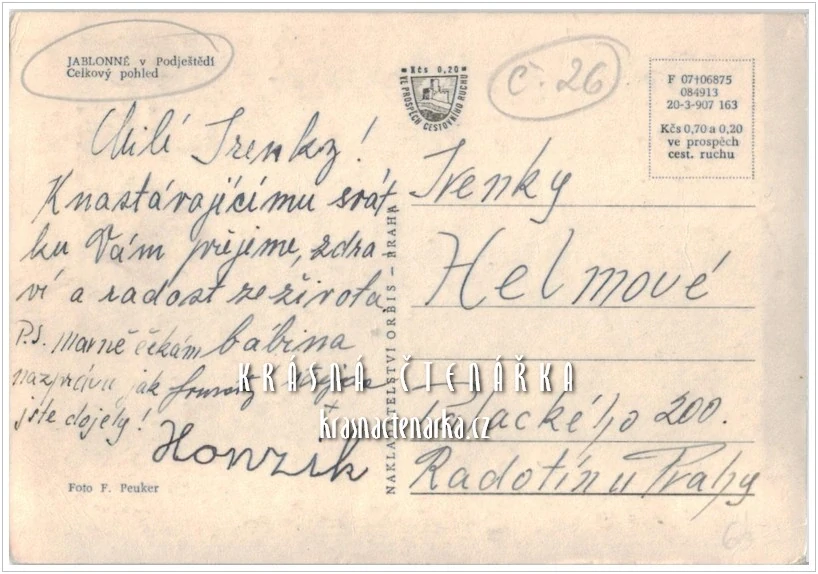 JABLONNÉ v Podještědí
Celkový pohled
Kčs 0,20
VE PROSPĚCH CESTOVNÍHO RUCHU
č. 26
F 07†06875
084913
20-3-907 163
Kčs 0,70 a 0,20
ve prospěch
cest. ruchu
Milé Irenky!
K nastávajícímu svát
ku Vám přejeme, zdra
ví a radost ze života
bábina
P.S. marně čekám
nazprávu, jak
jste dojely!
Honzik
Foto F. Peuker
NAKLADATELSTVÍ ORBIS – PRAHA
Irenky
Helmové
Palackého 200.
Radotín u Prahy
KRÁSNÁ ČTENÁŘKA
krasnactenarka.cz